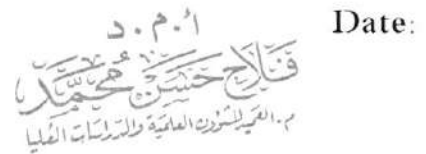 أ.م.د
Date:
فلاح حسن محمد
م.العميد للشؤون العلمية والدراسات العليا